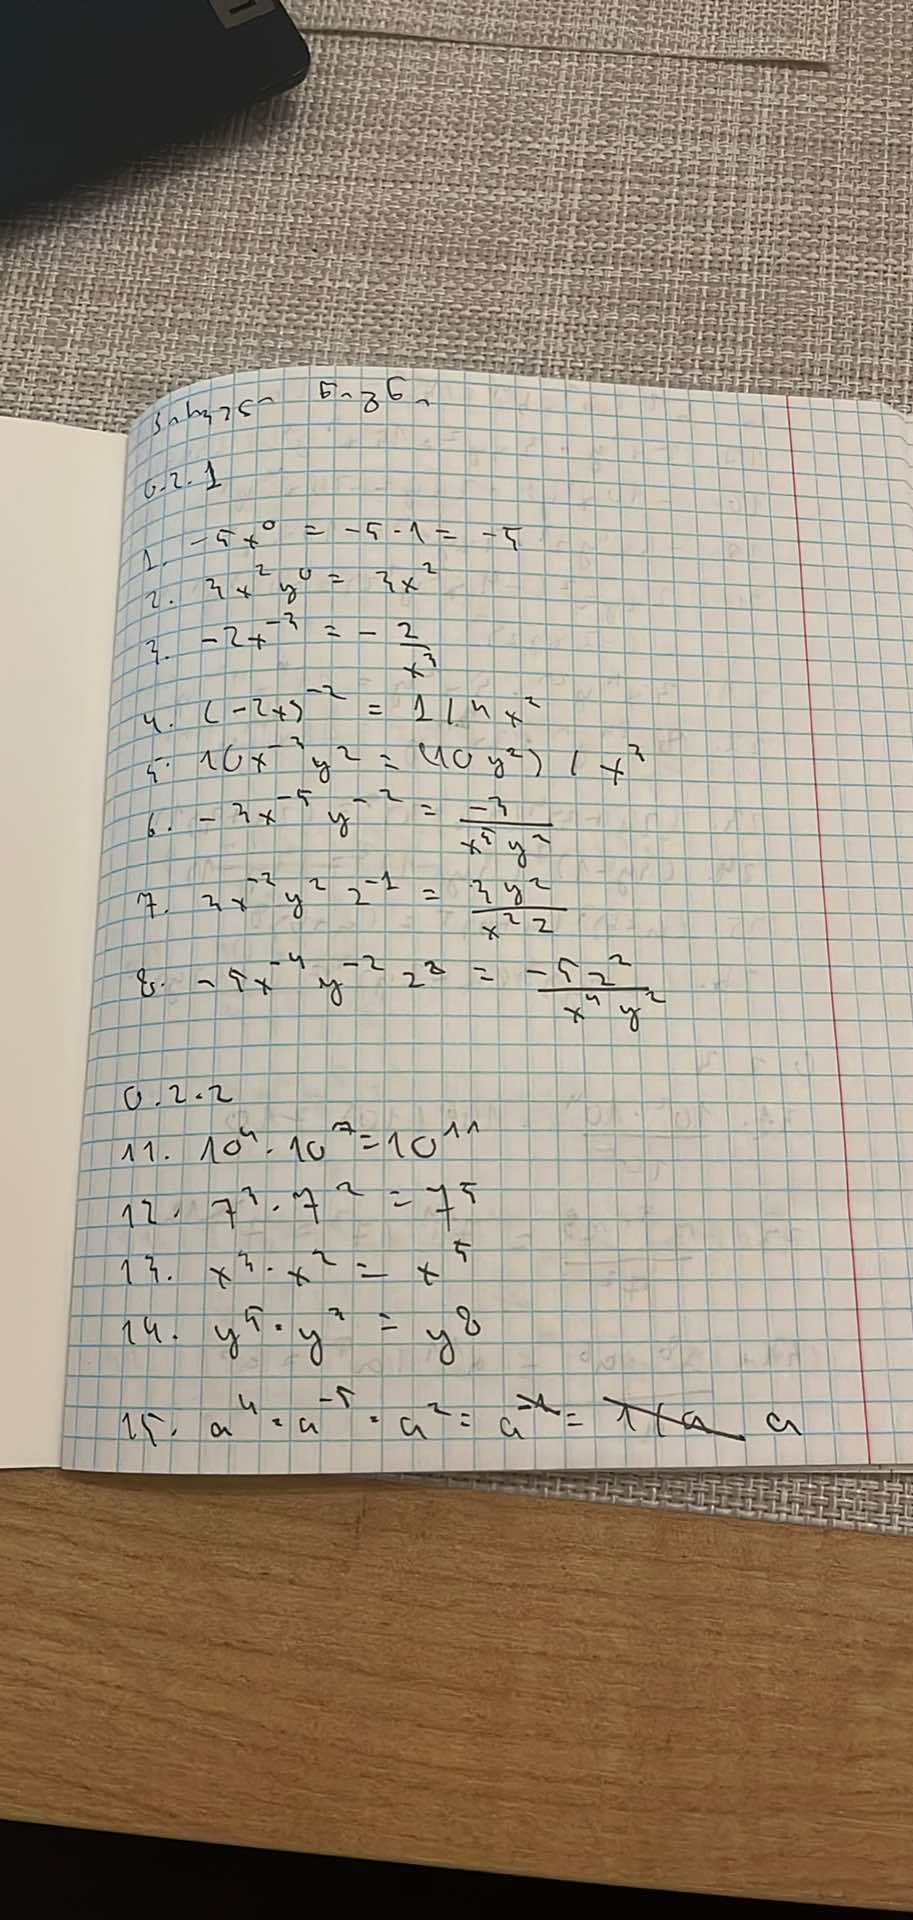 0.2.1
1. -5x⁰ = -5·1 = -5
2. 3x²y⁰ = 3x²
3. -2x⁻³ = -2/x³
4. (-2x)⁻² = 1/4x²
5. 10x⁻³y² = (10y²) / x³
6. -3x⁻⁵y⁻² = -3/x⁵y²
7. 3x⁻²y²z⁻¹ = 3y²/x²z
8. -5x⁻⁴y⁻²z² = -5z²/x⁴y²
0.2.2
11. 10⁴·10⁷=10¹¹
12. 7³·7² = 7⁵
13. x³·x² = x⁵
14. y⁵·y³ = y⁸
15. a⁴·a⁻⁵·a² = a⁻¹ = 1/a a